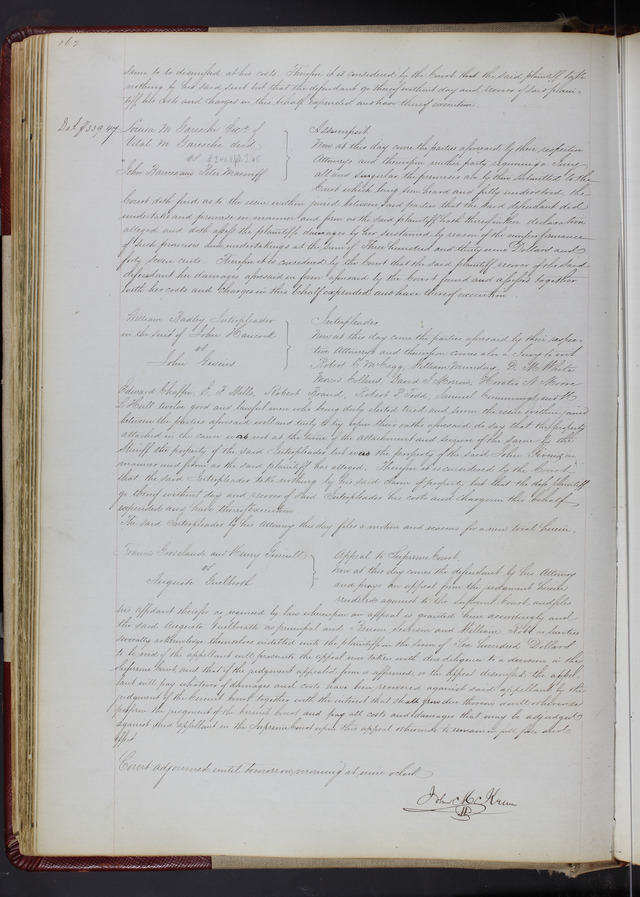 same to be dismissed at his costs. Therefore it is considered by the Court that the said plaintiff take
nothing by his said suit but that the defendant go thereof without day and recover of said plain-
tiff his costs and charges in this behalf expended and have thereof execution.
Dat $339.47
Louisa M Garesche Exx. of
Vital M Garesche decd
vs
John Barnes and Peter
Assumpsit
Now at this day come the parties aforesaid by their respective
Attorneys and thereupon neither party requiring a Jury
all and singular the premises are by them submitted to the
Court which being seen heard and fully understood, the
Court doth find as to the issue within joined between said parties that the said defendant did
undertake and promise in manner and form as the said plaintiff hath thereof in the declaration
alleged and doth assess the plaintiffs damages by her sustained by reason of the nonperformance
of such promises and undertakings at the sum of Three hundred and thirty nine Dollars and
forty seven cents. Therefore it is considered by the Court that the said plaintiff recover of the said
defendant her damages aforesaid in form aforesaid by the Court found and assessed together
with her costs and charges in this behalf expended and have thereof execution.
William Radley Interpleader
in the suit of John Hancock
vs
John Givens
Interpleader
Now at this day come the parties aforesaid by their respec-
tive Attorneys and thereupon comes also a Jury to wit
Robert C. McCragg, William Munday, D. McWhite
Morris Collins, David S. Morrow, Horatio N. Moore
Edward Chaffin, E. F. Mills, Robert Brand, Robert P. Todd, Samuel Cummings, and H
L Hull twelve good and lawful men who being duly elected tried and sworn the issue within joined
between the parties aforesaid well and truly to try upon their oaths aforesaid do say that the property
attached in the cause was not at the time of the attachment and seizure of the same by the
Sheriff the property of the said Interpleader but was the property of the said John Givens in
manner and form as the said plaintiff has alleged. Therefore it is considered by the Court
that the said Interpleader take nothing by his said claim of property but that the plaintiff
go thereof without day and recover of said Interpleader his costs and charges in this behalf
expended and have thereof execution.
The said Interpleader by his Attorney this day files a motion and reasons for a new trial herein.
Francis and Harry
vs
Auguste Guelbreth
Appeal to Supreme Court.
Now at this day comes the defendant by his Attorney
and prays an appeal from the judgment herein
rendered against to the Supreme Court, and files
his affidavit therefor as required by law whereupon an appeal is granted him accordingly and
the said Auguste Guelbreth as principal and and William Robb as sureties
severally acknowledge themselves indebted unto the plaintiffs in the sum of Two hundred Dollars
to be void if the appellant will prosecute the appeal now taken with due diligence to a decision in the
Supreme Court, and that if the judgment appealed from is affirmed, or the appeal dismissed the appel-
lant will pay whatever of damages and costs have been recovered against said appellant by the
judgment of the Circuit Court, together with the interest that shall grow due thereon and will otherwise
perform the judgment of the Circuit Court and pay all costs and damages that may be adjudged
against said appellant in the Supreme Court upon this appeal otherwise to remain in full force and
effect.
Court adjourned until tomorrow morning at nine oclock
John M. Krum